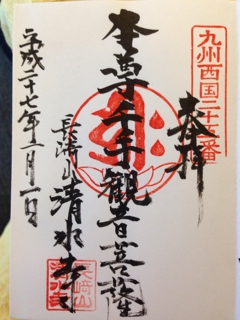 九州西国二十五番
奉拝
本尊千手観音菩薩
長崎山清水寺
平成二十七年
長崎山
清水寺